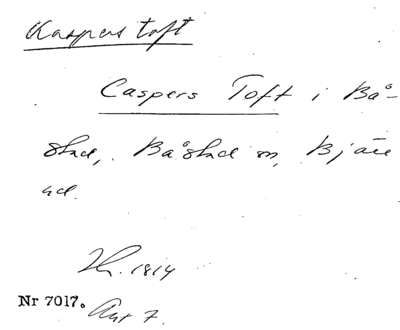 Kaspers toft
Caspers Toft i Bå-
stad, Båstad sn, Bjäre
hd.
Lh. 1814
Nr 7017. Akt 7.